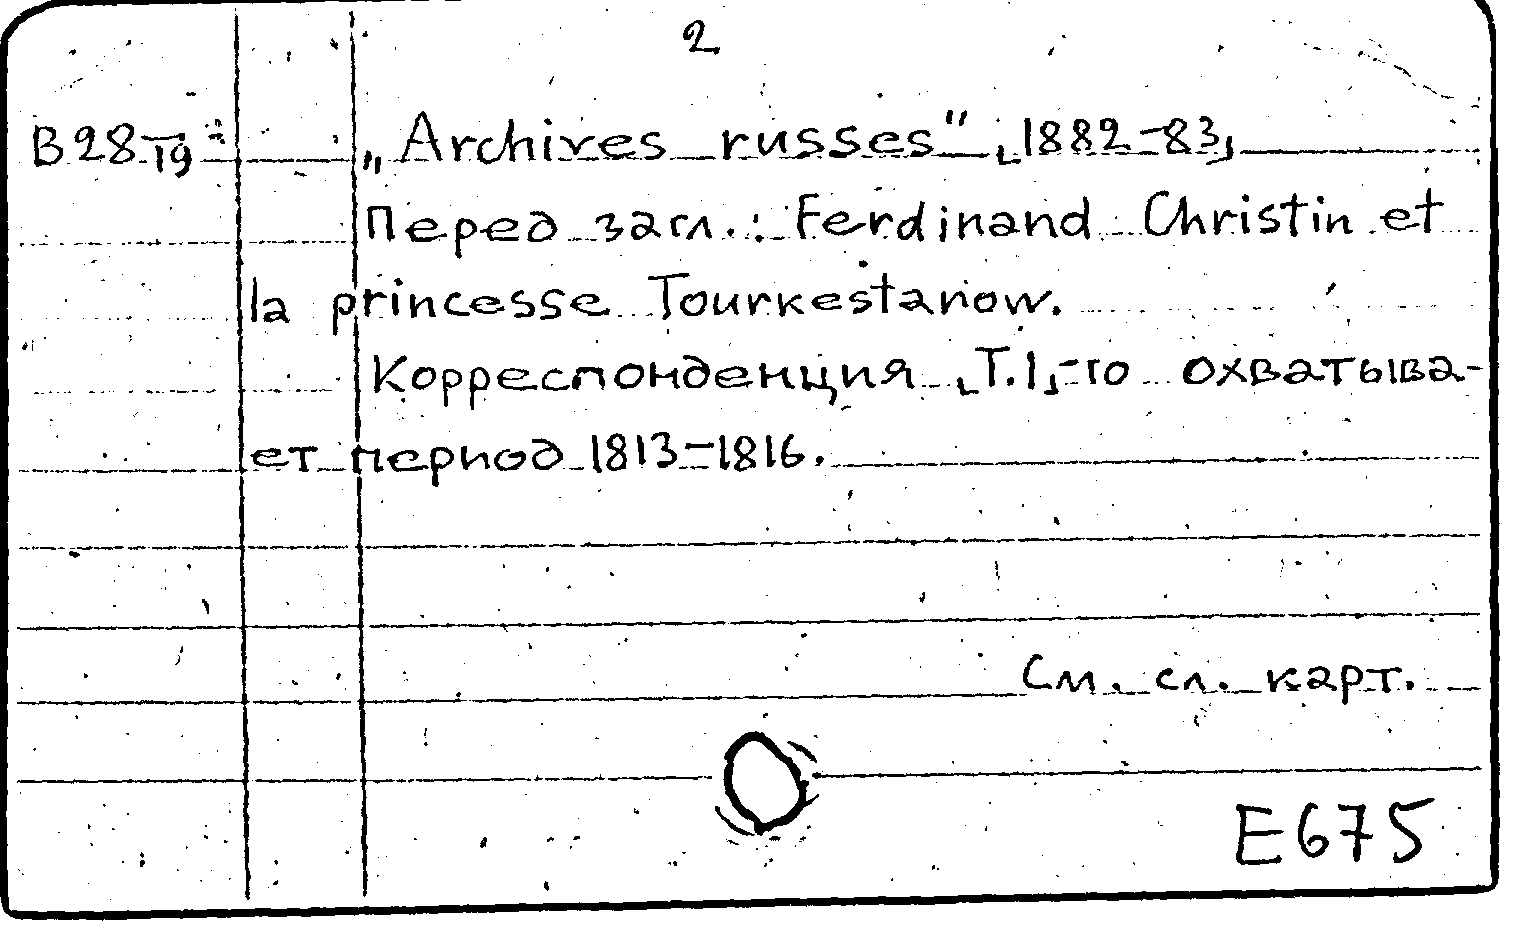 2
В28-19 „Archives russes“ [1882-83]
Перед загл.: Ferdinand Christin et
la princesse Tourkestanow.
Корреспонденция [Т.I]-го охватыва-
ет период 1813-1816.
См. сл. карт.
E675